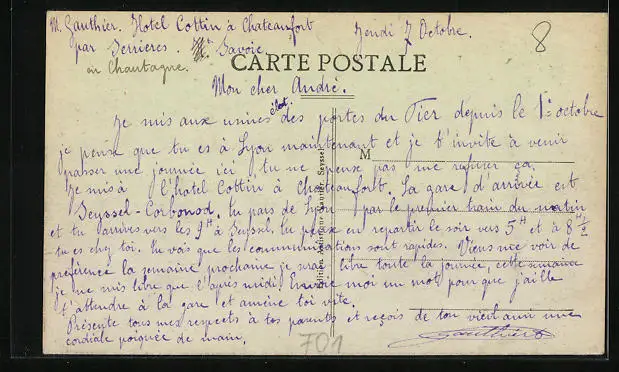 M. Gauthier. Hotel Cottin à Chateaufort
par Serrières. Hte Savoie.
en Chautagne.
Jeudi 7 Octobre.
8
CARTE POSTALE
Mon cher André.
Je suis aux usines élect. des portes du Fier depuis le 1er octobre
je pense que tu es à Lyon maintenant et je t'invite à venir
passer une journée ici, tu ne peux pas me refuser ça.
M
Je suis à l'hotel Cottin à Chateaufort. La gare d'arrivée est
Seyssel-Corbonod. tu pars de Lyon par le premier train du matin
et tu arrives vers les 9H à Seyssel, tu peux en repartir le soir vers 5H et à 8H 1/2
tu es chez toi. Tu vois que les communications sont rapides. Viens me voir de
préférence la semaine prochaine je serai libre toute la journée, cette semaine
je ne suis libre que l'après midi! Envoie moi un mot pour que j'aille
t'attendre à la gare et amène toi vite.
Présente tous mes respects à tes parents et reçois de ton vieil ami une
cordiale poignée de main.
Gauthier
701
Gautier, Seyssel